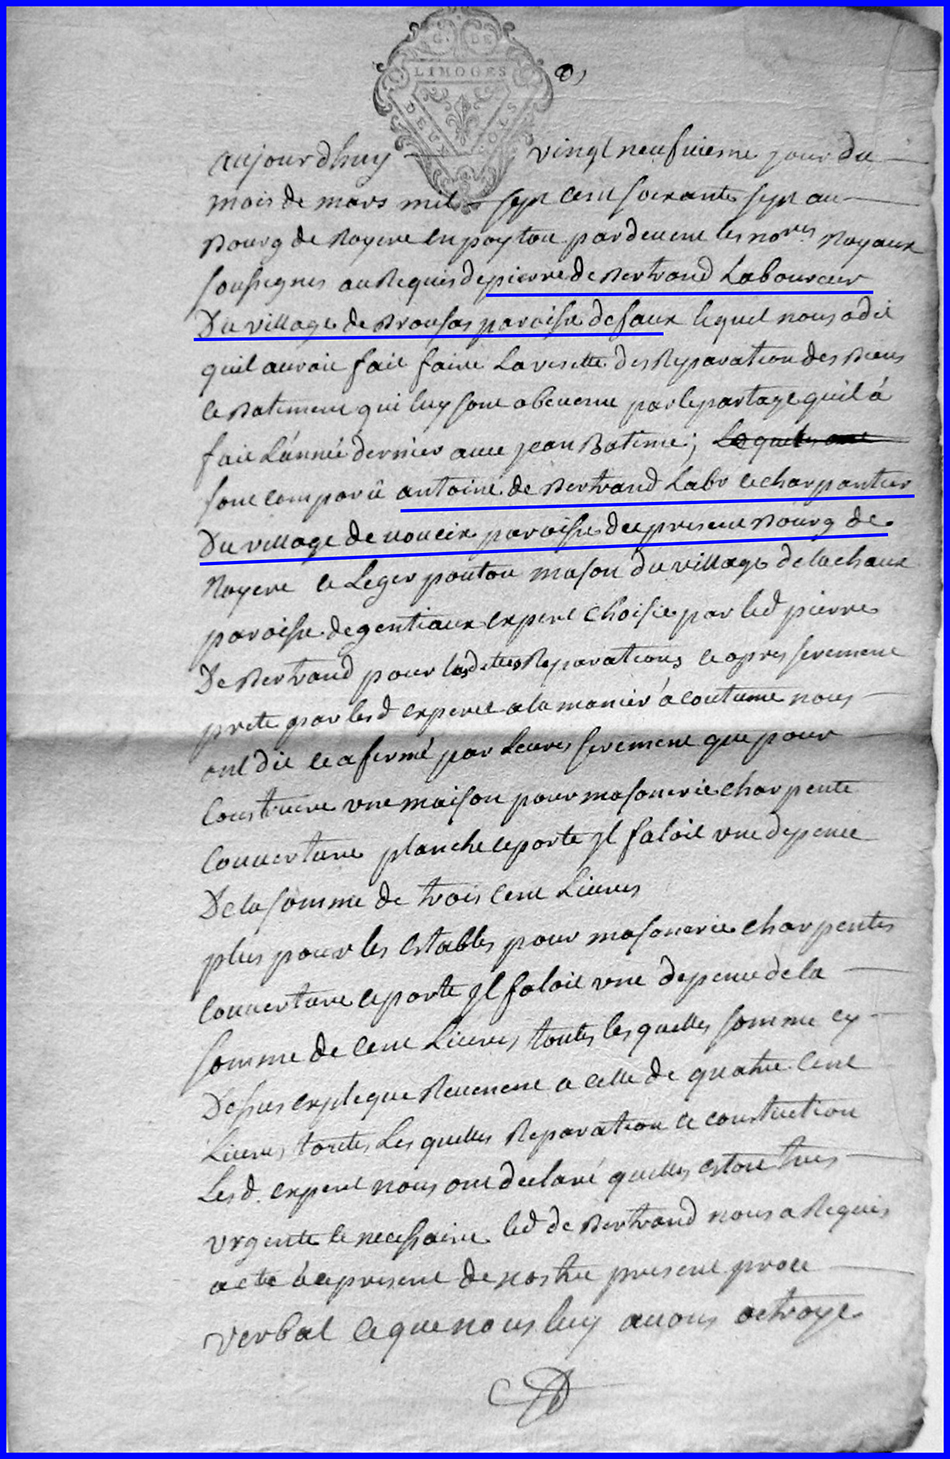 G. DE
LIMOGES
DEUX SOLS
aujourdhuy vingt neufvieme jour du
mois de mars mil sept cent soixante sept au
Bourg de Royere en poytou pardevent les nores Royaux
soussignes au Requis de pierre de Bertrand Laboureur
Du village de Brousas paroisse de faux lequel nous a dit
quil auroit fait faire La visitte des Reparation des Biens
et Batiment qui luy sont obvenue par le partage quil à
fait L'année dernier avec jean Batime; Lequels ont
sont comparû antoine de Bertrand Labr et charpantier
Du village de paroisse du present Bourg de
Royere et Leger poutou mason du village de lachaux
paroisse de gentiaux expert choisie par led pierre
De Bertrand pour lesdittes Reparations et apres serement
prete par lesd experts a la manier à coutume nous
ont dit et afirmé par Leurs serement que pour
Construire une maison pour masonerie charpente
Couverture planche et porte jl faloit une depence
De la somme de trois cent Livres
plus pour les Estables pour masonerie charpentes
Couverture et porte jl faloit une depence de la
somme de cent Livres, toutes les quelles somme cy
Desus expleque Revenent a celle de quatre cent
Livres, toutes Les quelles Reparation et constuction
Lesd. expert nous ont declaré quelles estoit tres
urgente et necessaire led de Bertrand nous a Requis
acte à present de nostre present proce
verbal ce que nous luy avons octroye